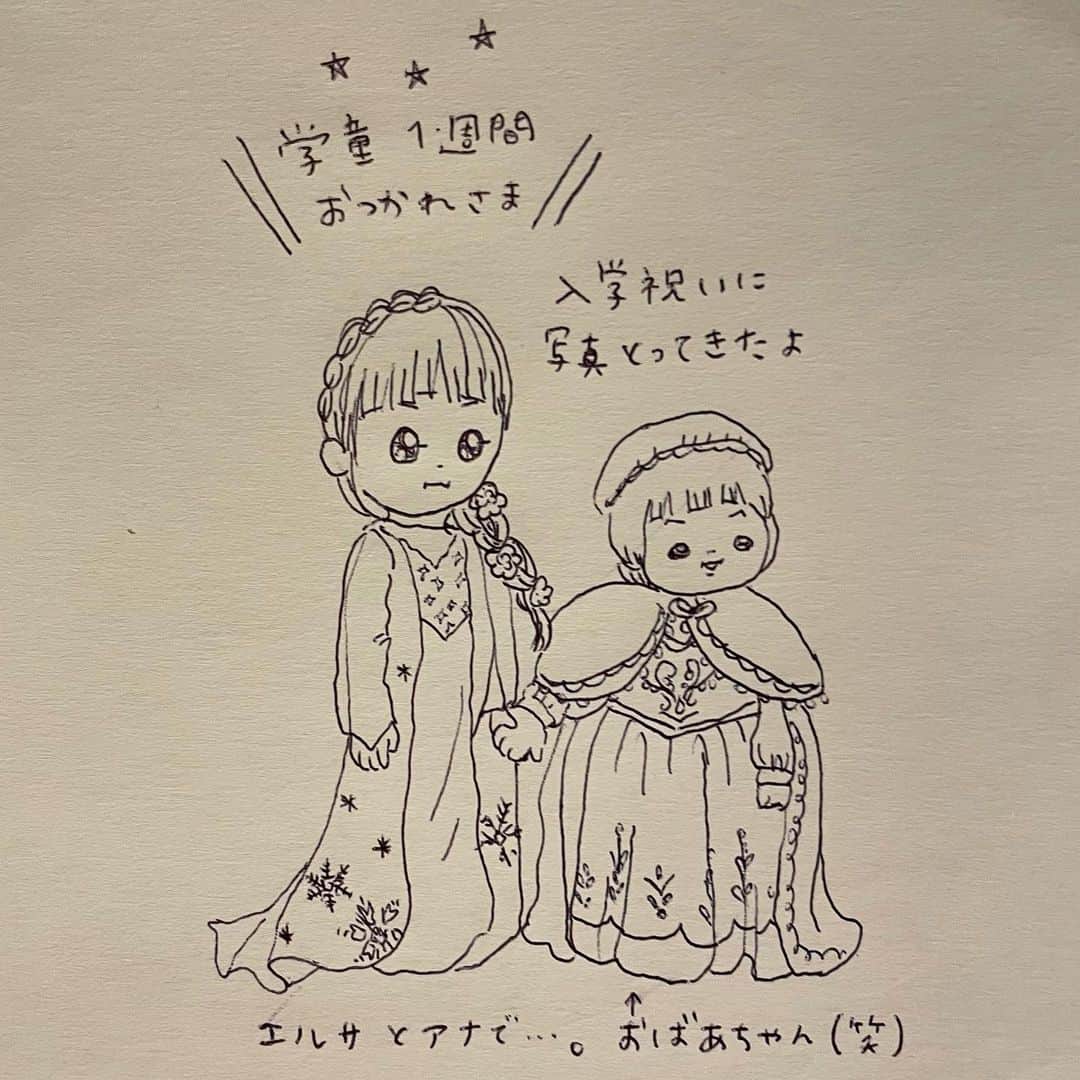 学童 1週間
おつかれさま
入学祝いに
写真とってきたよ
エルサとアナで…。
↑
おばあちゃん(笑)